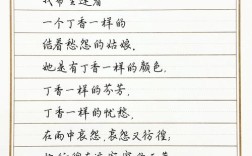 我希望逢着
一个丁香一样的
结着愁怨的姑娘.
她是有丁香一样的颜色,
丁香一样的芬芳,
丁香一样的忧愁,
在雨中哀怨,哀怨又彷徨;